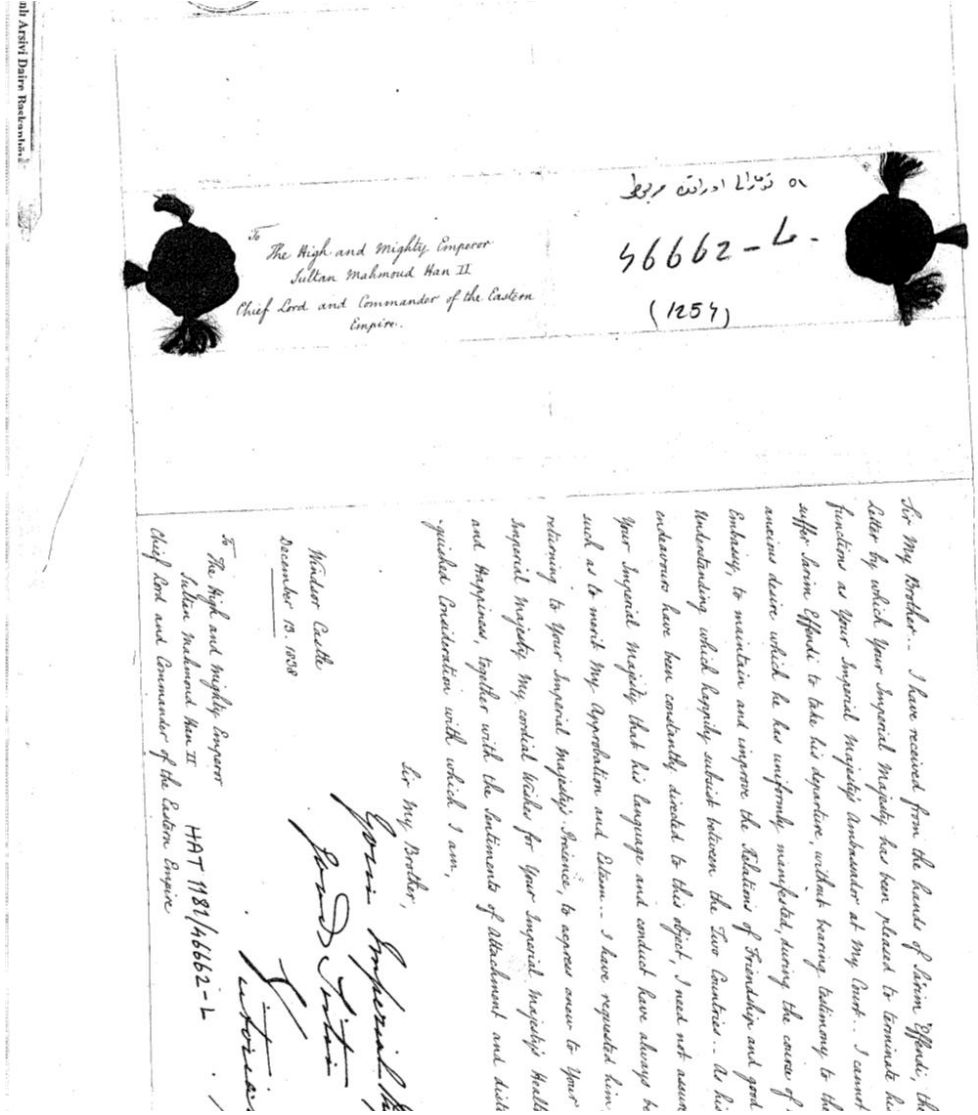 To
The High and Mighty Emperor
Sultan Mahmoud Han II
Chief Lord and Commander of the Eastern
Empire.
46662-L.
(1254)
Sir My Brother.. I have received from the hands of Sarim Effendi, the
Letter by which Your Imperial Majesty has been pleased to terminate his
functions as Your Imperial Majesty's Ambassador at My Court.. I cannot
suffer Sarim Effendi to take his departure, without bearing testimony to the
anxious desire which he has uniformly manifested, during the course of
Embassy, to maintain and improve the Relations of Friendship and good
Understanding which happily subsist between the Two Countries.. As his
endeavours have been constantly directed to this object, I need not assure
Your Imperial Majesty that his language and conduct have always be
such as to merit My Approbation and Esteem.. I have requested him,
returning to Your Imperial Majesty's Presence, to express anew to Your
Imperial Majesty My cordial Wishes for Your Imperial Majesty's Health
and Happiness, together with the Sentiments of Attachment and disti
-guished Consideration with which I am,
Sir My Brother,
Your Imperial
Good Sister
Victoria
Windsor Castle
December 13. 1838
To
The High and Mighty Emperor
Sultan Mahmoud Han II
Chief Lord and Commander of the Eastern Empire
HAT 1182/46662-L